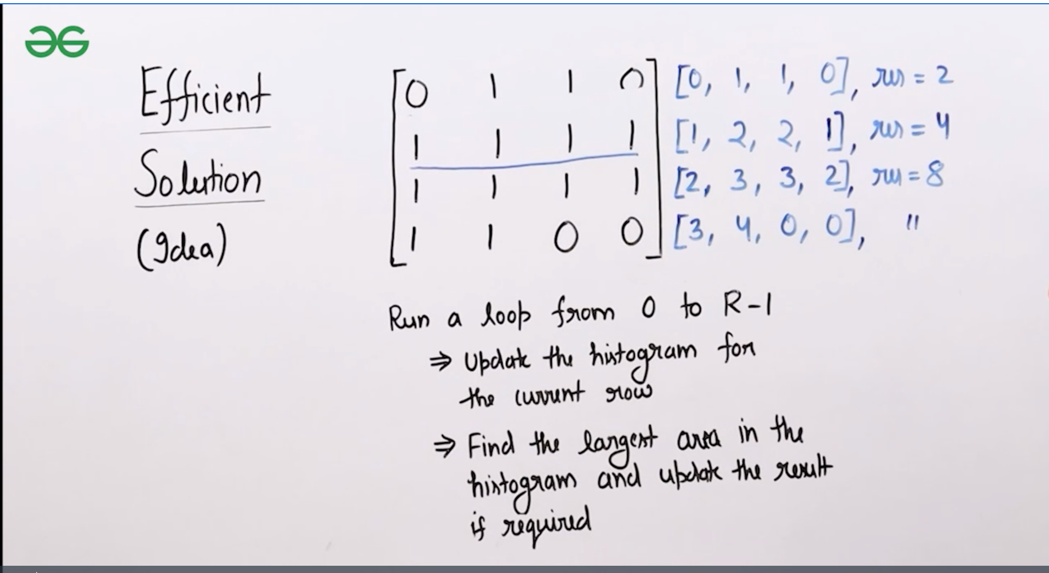 Efficient
Solution
(Idea)
0 1 1 0 [0, 1, 1, 0], res = 2
1 1 1 1 [1, 2, 2, 1], res = 4
1 1 1 1 [2, 3, 3, 2], res = 8
1 1 0 0 [3, 4, 0, 0], "
Run a loop from 0 to R-1
⇒ Update the histogram for
the current row
⇒ Find the largest area in the
histogram and update the result
if required